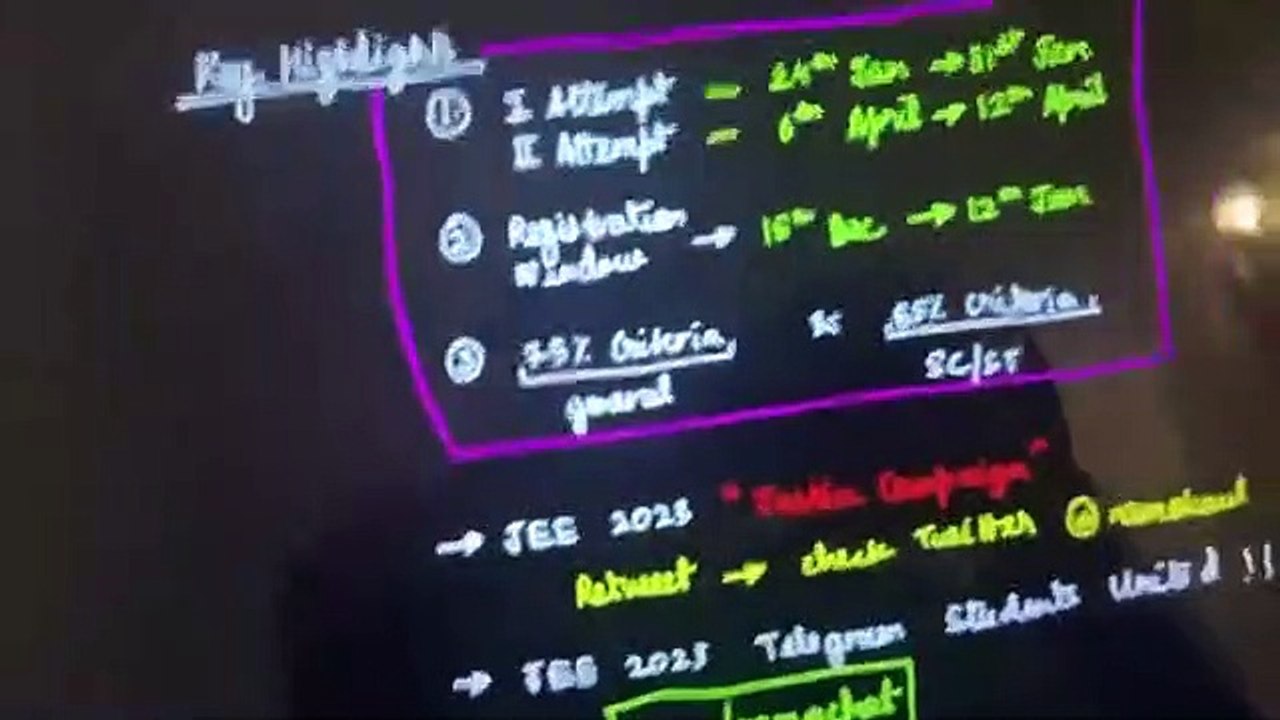 Key Highlight
① I Attempt = 24th Jan → 31st Jan
II Attempt = 6th April → 12th April
② Registration → 15th Dec → 12th Jan
Window
③ 75% Criteria, & 65% Criteria,
general SC/ST
→ JEE 2023 " Justice Campaign "
Retweet → check Twitter @
→ JEE 2023 Telegram Students United !!